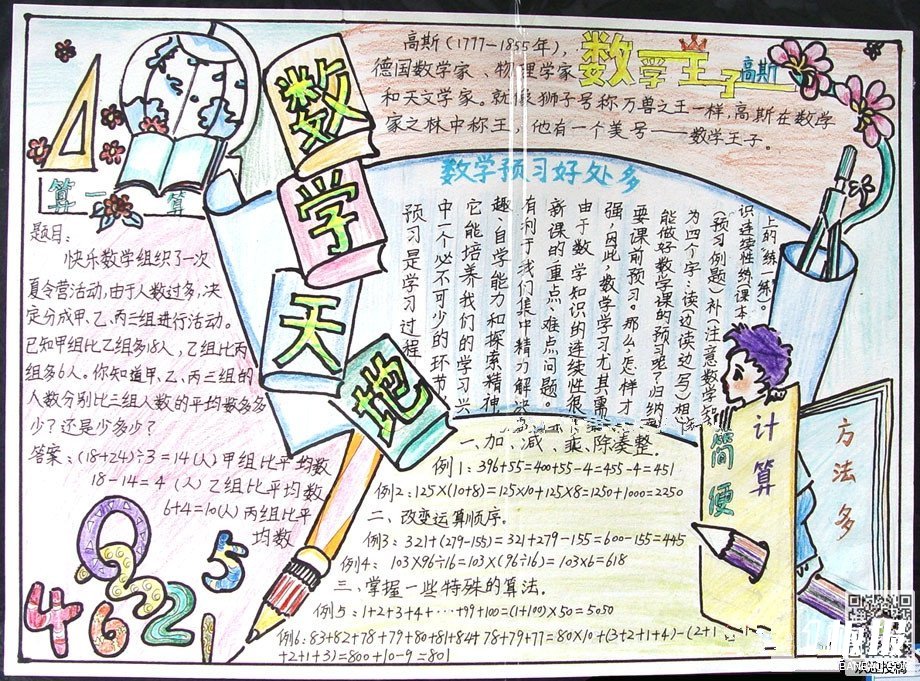 数学天地
高斯(1777-1855年),
德国数学家、物理学家
和天文学家。就像狮子号称万兽之王一样,高斯在数学
家之林中称王,他有一个美号——数学王子。
数学王子高斯
算一算
题目:
快乐数学组织了一次
夏令营活动,由于人数过多,决
定分成甲、乙、丙三组进行活动。
已知甲组比乙组多18人,乙组比丙
组多6人。你知道甲、乙、丙三组的
人数分别比三组人数的平均数多多
少?还是少多少?
答案:(18+24)÷3=14(人)甲组比平均数
18-14=4(人)乙组比平均数
6+4=10(人)丙组比平
均数
数学预习好处多
预习是学习过程
中一个必不可少的环节,
它能培养我们的学习兴
趣、自学能力和探索精神,
有利于我们集中精力解
新课的重点、难点问题。
由于数学知识的连续性很
强,因此,数学学习尤其需
要课前预习。那么,怎样才
能做好数学课的预习呢?归纳
为四个字:读(边读边写)想
(预习例题)补(注意数学知
识连续性)练(课本
上的“练一练”)
简便计算方法多
一、加、减、乘、除凑整。
例1:396+55=400+55-4=455-4=451
例2:125×(10+8)=125×10+125×8=1250+1000=2250
二、改变运算顺序。
例3:321+(279-155)=321+279-155=600-155=445
例4:103×96÷16=103×(96÷16)=103×6=618
三、掌握一些特殊的算法。
例5:1+2+3+4+…+99+100=(1+100)×50=5050
例6:83+82+78+79+80+81+84+78+79+77=80×10+(3+2+1+4)-(2+1
+2+1+3)=800+10-9=801
4 6 2 5 1
欢迎投稿